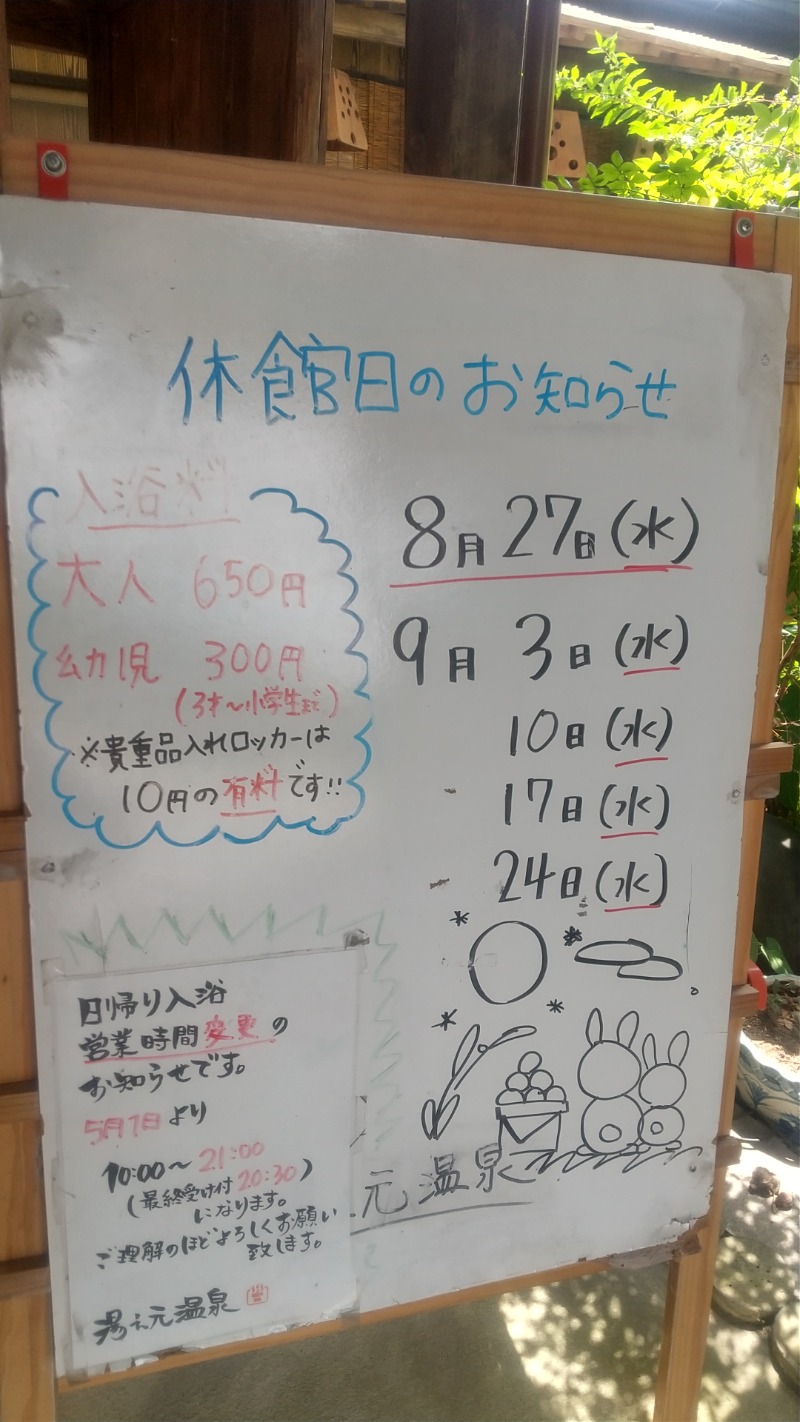 休館日のお知らせ
入浴料
大人 650円
幼児 300円
(3才〜小学生まで)
※貴重品入れロッカーは
10円の有料です!!
8月27日(水)
9月 3日(水)
10日(水)
17日(水)
24日(水)
日帰り入浴
営業時間変更の
お知らせです。
5月1日より
10:00〜21:00
(最終受付20:30)
になります。
ご理解のほどよろしくお願い
致します。
湯之元温泉
元温泉